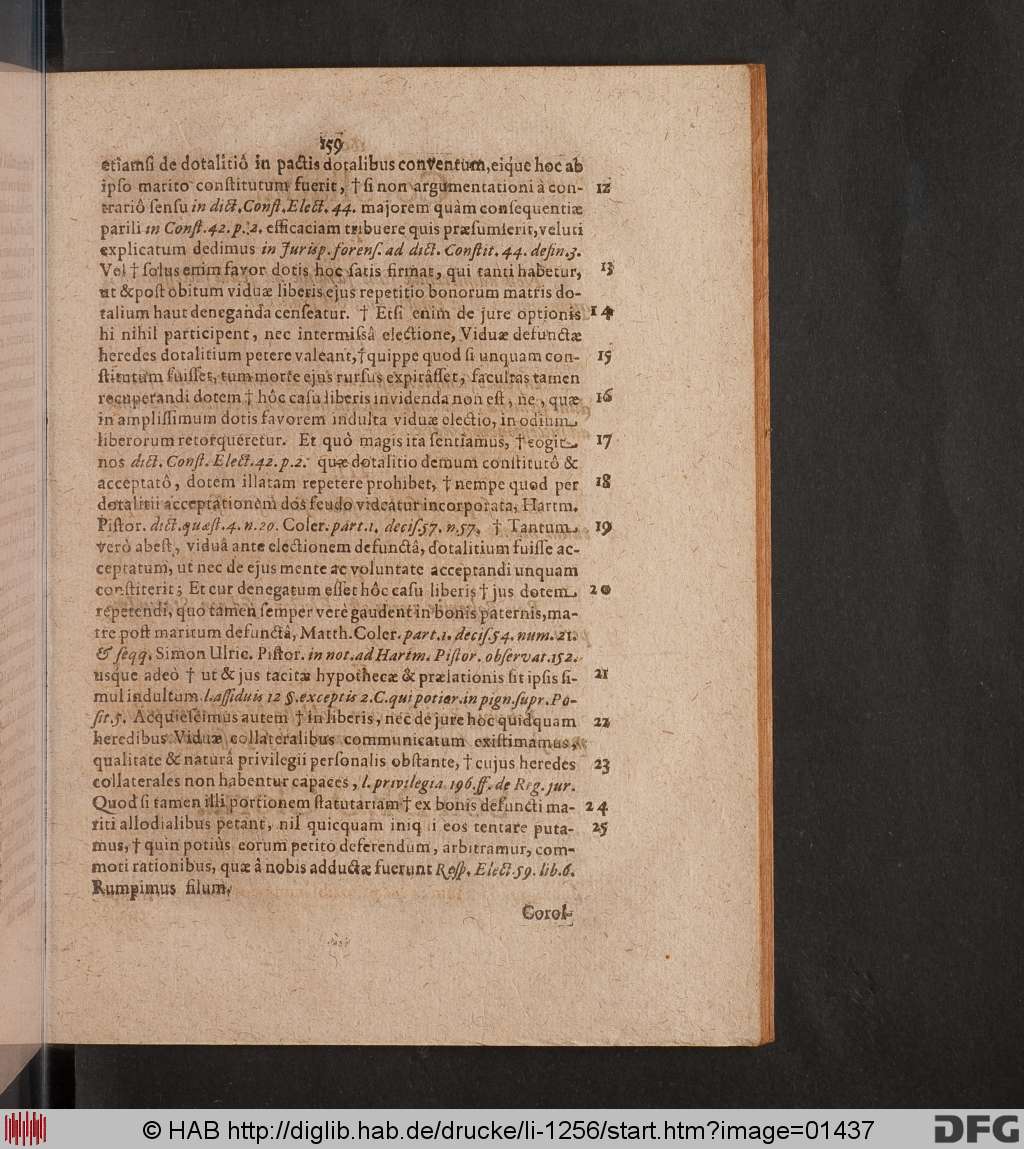 159
etiamsi de dotalitiô in pactis dotalibus conventum, eique hoc ab
ipso marito constitutum fuerit, † si non argumentationi à con- 12
trariô sensu in dict. Const. Elect. 44. majorem quàm consequentiæ
parili in Const. 42. p. 2. efficaciam tribuere quis præsumserit, veluti
explicatum dedimus in Jurisp. forens. ad dict. Constit. 44. defin. 3.
Vel † solus enim favor dotis hoc satis firmat, qui tanti habetur, 13
ut & post obitum viduæ liberis ejus repetitio bonorum matris do-
talium haut deneganda censeatur. † Etsi enim de jure optionis 14
hi nihil participent, nec intermissâ electione, Viduæ defunctæ
heredes dotalitium petere valeant, † quippe quod si unquam con- 15
stitutum fuisset, tum morte ejus rursus expirâsset, facultas tamen
recuperandi dotem † hôc casu liberis invidenda non est, ne, quæ 16
in amplissimum dotis favorem indulta viduæ electio, in odium
liberorum retorqueretur. Et quô magis ita sentiamus, † cogit 17
nos dict. Const. Elect. 42. p. 2. quæ dotalitio demum constitutô &
acceptatô, dotem illatam repetere prohibet, † nempe quod per 18
dotalitii acceptationem dos feudo videatur incorporata, Hartm.
Pistor. dict. quæst. 4. n. 20. Coler. part. 1. decis. 57. n. 57. † Tantum 19
verò abest, viduâ ante electionem defunctâ, dotalitium fuisse ac-
ceptatum, ut nec de ejus mente ac voluntate acceptandi unquam
constiterit; Et cur denegatum esset hôc casu liberis † jus dotem 20
repetendi, quo tamen semper verè gaudent in bonis paternis, ma-
tre post maritum defunctâ, Matth. Coler. part. 1. decis. 54. num. 21.
& seqq. Simon Ulric. Pistor. in not. ad Hartm. Pistor. observat. 152.
usque adeò † ut & jus tacitæ hypothecæ & prælationis sit ipsis si- 21
mul indultum l. assiduis 12 §. exceptis 2. C. qui potior. in pign. supr. Po-
sit. 5. Acquiescimus autem † in liberis, nec de jure hoc quidquam 22
heredibus Viduæ collateralibus communicatum existimamus,
qualitate & naturâ privilegii personalis obstante, † cujus heredes 23
collaterales non habentur capaces, l. privilegia 196. ff. de Reg. jur.
Quod si tamen illi portionem statutariam † ex bonis defuncti ma- 24
riti allodialibus petant, nil quicquam iniqui eos tentare puta- 25
mus, † quin potiùs eorum petito deferendum, arbitramur, com-
moti rationibus, quæ â nobis adductæ fuerunt Resp. Elect. 59. lib. 6.
Rumpimus filum,
Corol-
© HAB http://diglib.hab.de/drucke/li-1256/start.htm?image=01437
DFG